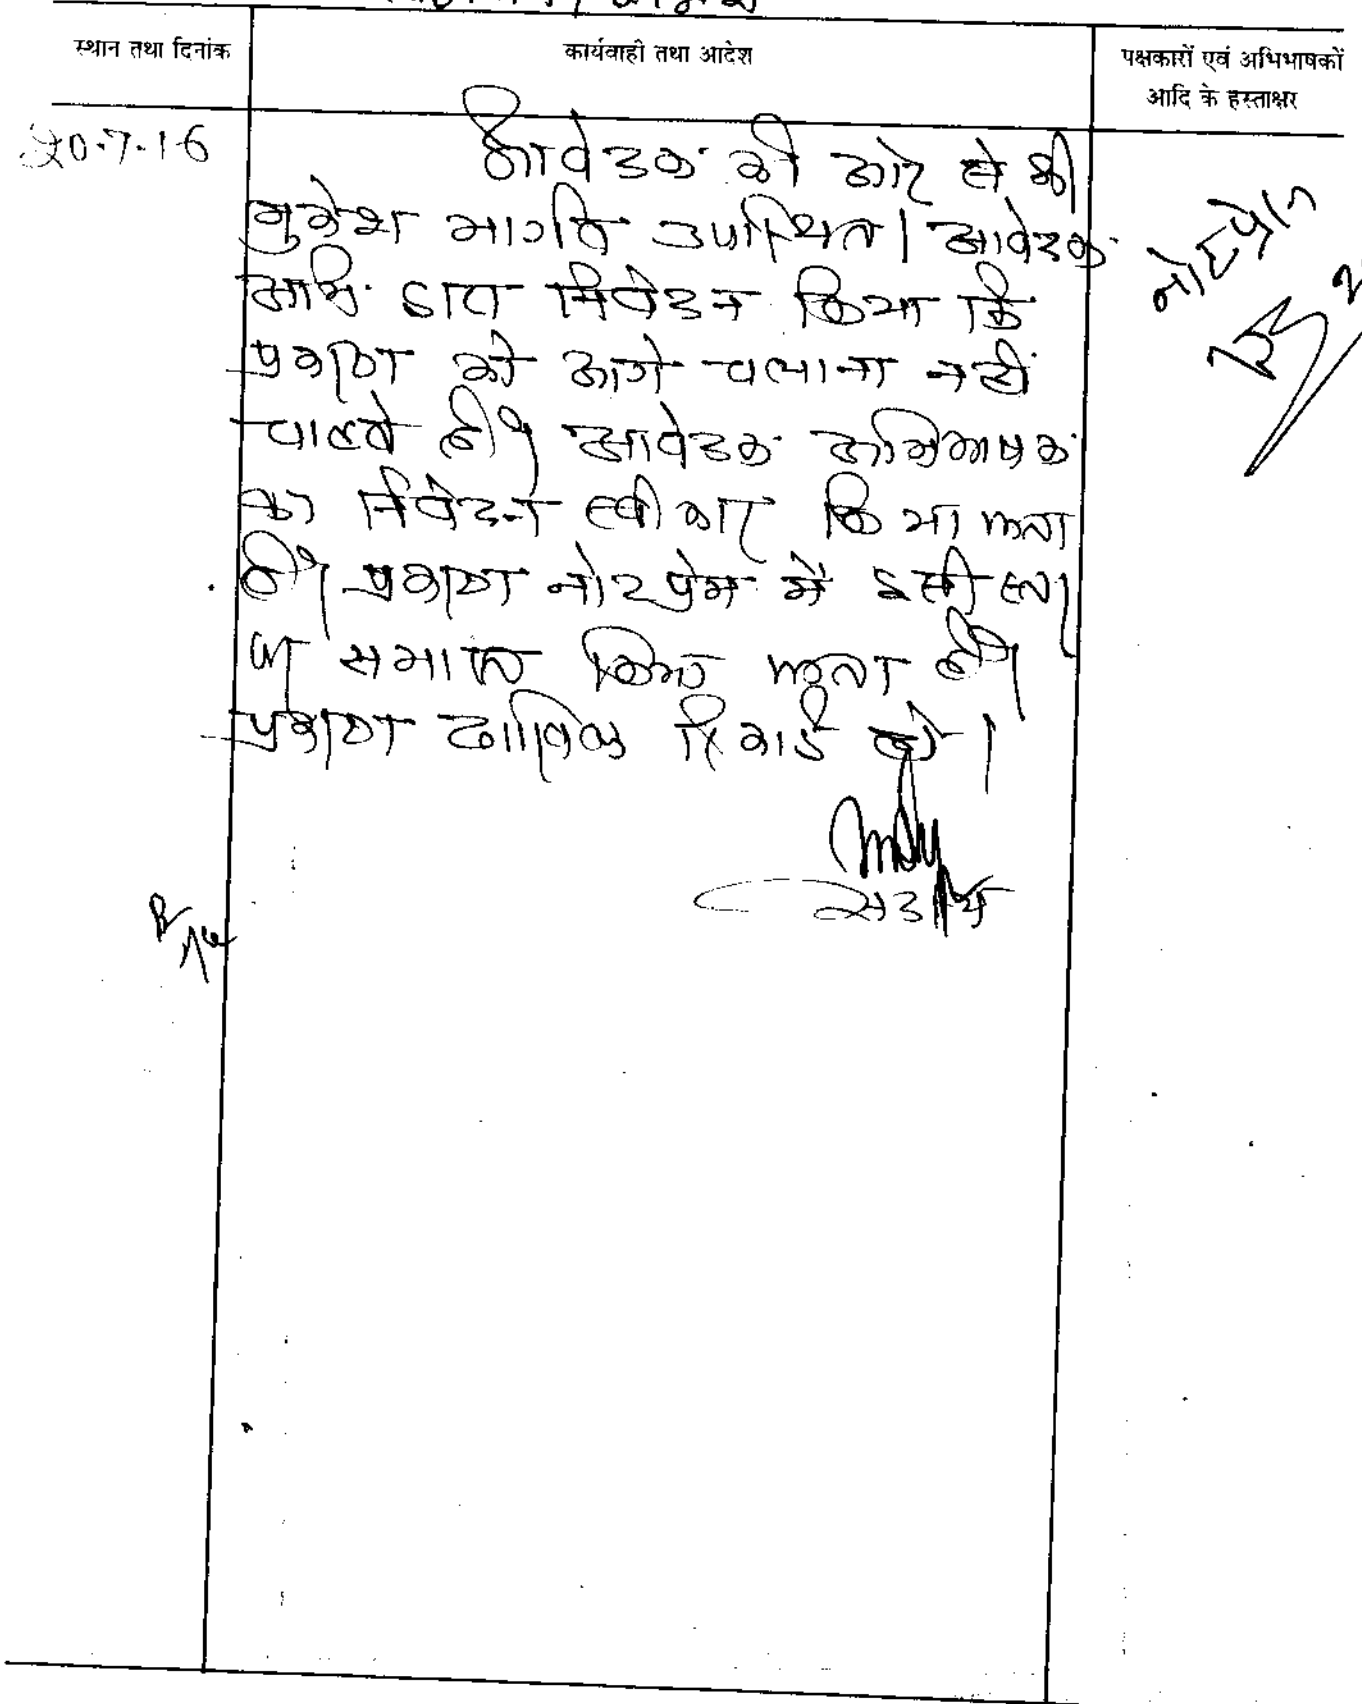 स्थान तथा दिनांक
कार्यवाही तथा आदेश
पक्षकारों एवं अभिभाषकों
आदि के हस्ताक्षर
20.7.16
आवेदक की ओर से श्री
मुकेश भार्गव उपस्थित। आवेदक
अभि. द्वारा निवेदन किया कि
प्रकरण को आगे चलाना नहीं
चाहते है। आवेदक अभिभाषक
का निवेदन स्वीकार किया जाता
है। प्रकरण नोटप्रेस में इसी स्तर
पर समाप्त किया जाता है।
प्रकरण दाखिल रिकार्ड हो।
सदस्य
नोटप्रेस